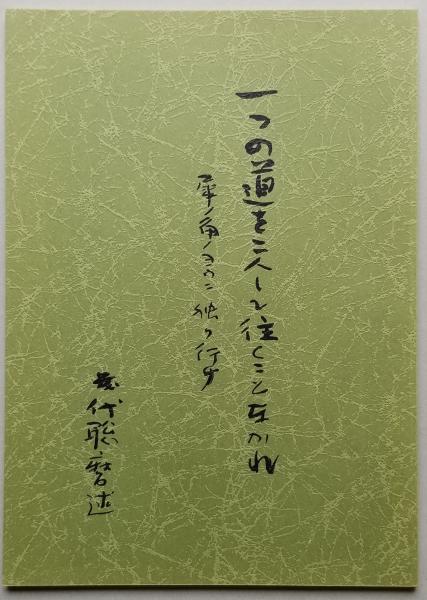 一つの道を二人して往くことなかれ
犀ノ角ノヨウニ独リ行ケ
藤代聡麿述